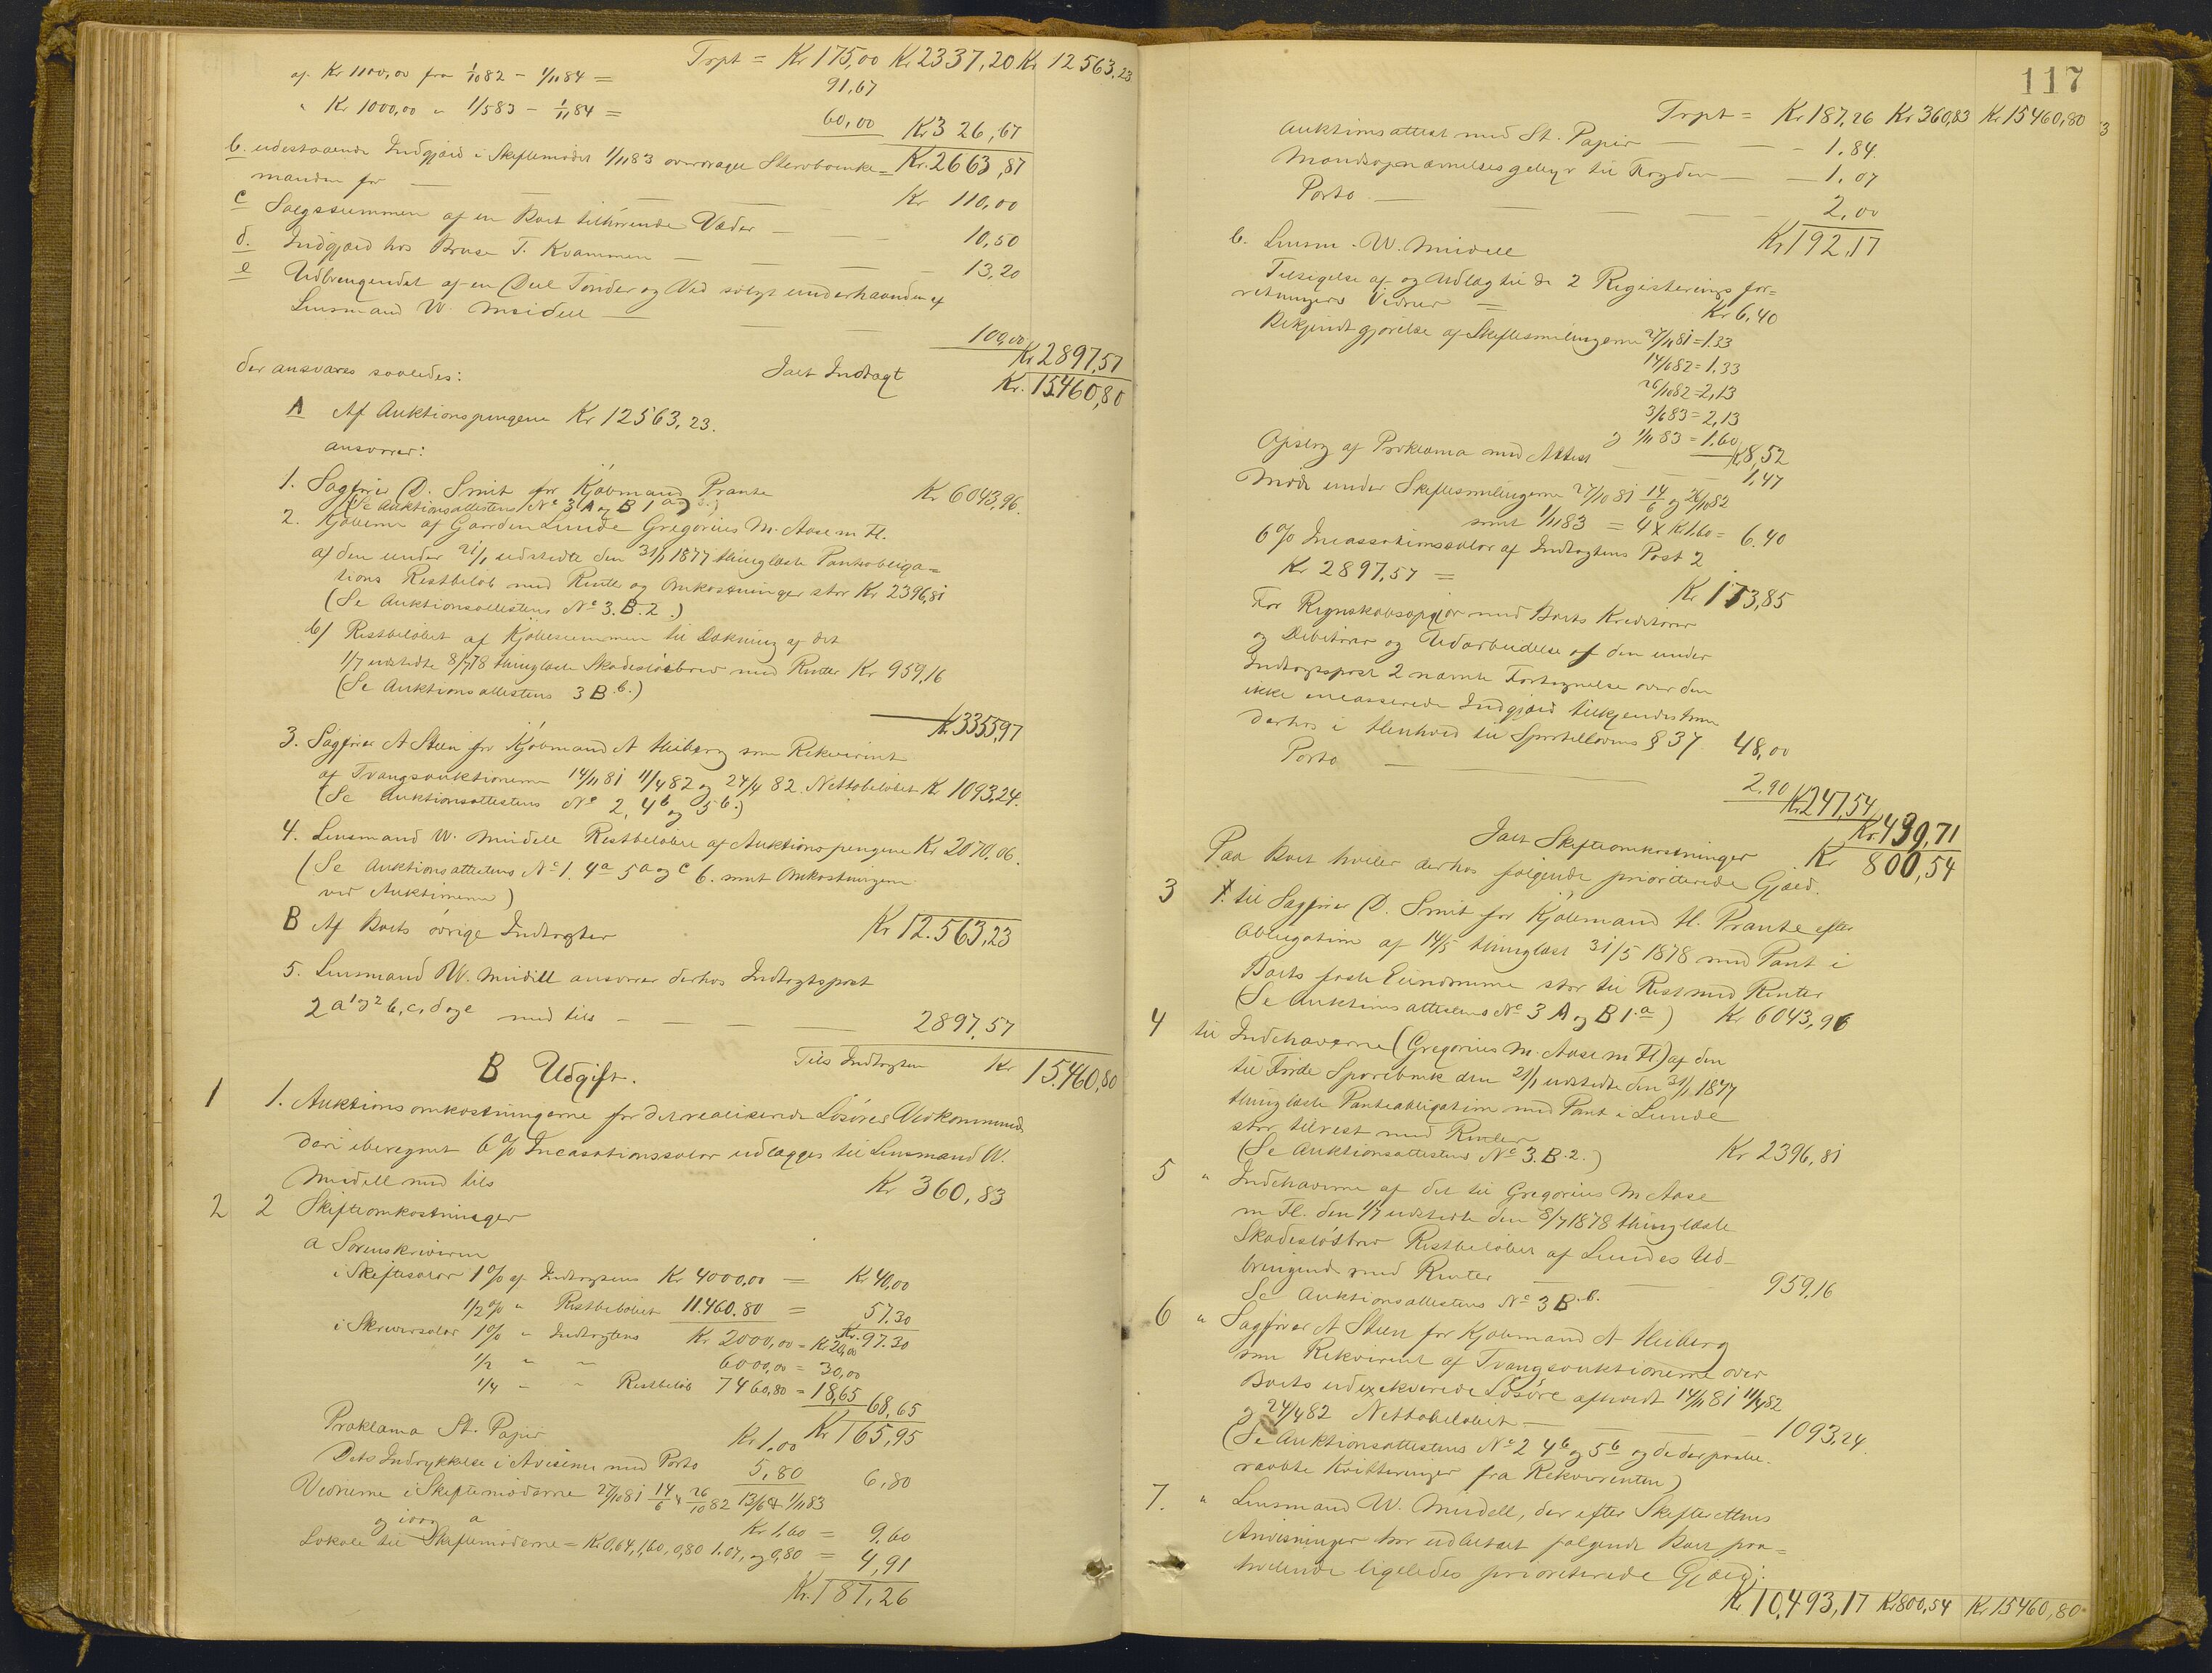 Trpt = Kr 175,00 Kr 2337,20 Kr 12563,23
af Kr 1100,00 fra 1/10 82 - 1/11 84 = 91,67
" Kr 1000,00 " 1/5 83 - 1/11 84 = 60,00 Kr 326,67
Kr. 2663,87
b. udestaaende Indgjæld i Skiftemödet 1/11 83 overdraget Stervboenke=
manden for — — — Kr 110,00
c Salgssummen af en Boet tilhörende Væder — — — 10,50
d. Indgjæld hos Bruse T. Kvammen — — — 13,20
e Udbringendet af en Deel Tönder og Ved solgt underhaanden af
Lensmand W. Meidell — — — 100,00
Kr 2897,57
Ialt Indtægt Kr. 15460,80
der ansvares saaledes:
A Af Auktionspengene Kr 12563,23.
ansvarer:
1. Sagförer D. Smit for Kjöbmand Prante Kr 6043,96.
(Se Auktionsattestens No 3 A og B 1 a)
2. Kjöberne af Gaarden Lunde Gregorius M. Aase m Fl.
af den under 21/1 udstedte den 31/1 1877 thinglæste Panteobliga=
tions Restbelöb med Renter og Omkostninger stor Kr 2396,81
(Se Auktionsattestens No 3. B. 2.)
b/ Restbelöbet af Kjöbesummen til Dækning af det
1/7 udstedte 8/7 78 thinglæste Skadeslösbrev med Renter Kr 959,16
(Se Auktionsattestens 3 B b.)
Kr. 3355,97
3. Sagförer A Steen for Kjöbmand A Heiberg som Rekvirent
af Tvangsauktionerne 14/11 81 11/4 82 og 24/4 82. Nettobelöbet Kr 1093,24.
(Se Auktionsattestens No 2, 4b og 5b.)
4. Lensmand W. Meidell Restbelöbet af Auktionspengene Kr 2070,06.
(Se Auktionsattestens No 1. 4a 5a og c 6. samt Omkostningerne
ved Auktionerne)
Kr 12.563,23
B Af Boets övrige Indtægter
5. Lensmand W. Meidell ansvarer derhos Indtægtspost
2 a 1 og 2 b, c, d og e med tils — — — 2897,57
Tils Indtægten Kr 15.460,80
B Udgift.
1 1. Auktionsomkostningerne for det realiserede Lösöres Vedkommende
deri iberegnet 6 % Incasationssalær udlægges til Lensmand W.
Meidell med tils Kr 360,83
2 2 Skifteomkostninger
a Sorenskriveren
i Skiftesalær 1 % af Indtægtens Kr 4000,00 = Kr 40,00
1/2 % " Restbelöbet 11.460.80 = 57.30
Kr. 97.30
i Skriversalær 1 % " Indtægtens Kr. 2000,00 = Kr 20,00
1/2 " " 6000,00 = 30,00
1/4 " " Restbelöb 7460,80 = 18,65 68,65
Kr 165,95
Proklama St. Papir Kr 1.00
Dets Indrykkelse i Aviserne med Porto 5,80 6,80
Vidnerne i Skiftemöderne 27/10 81 14/6 & 26/10 82 13/6 & 1/11 83
og idag a Kr 1,60 = 9,60
Lokale til Skiftemöderne = Kr 0,64, 1,60, 0,80 1.07, og 0,80 = 4,91
Kr. 187,26
117
Trpt = Kr 187,26 Kr 360,83 Kr 15460,80
Auktionsattest med St. Papir — — 1.84.
Mandsopnævnelsesgebyr til Fogden — — 1,07
Porto — — — 2,00
Kr 192,17
b. Lensm. W. Meidell
Tilsigelse af og Udlæg til de 2 Registreringsfor=
retningers Vidner = Kr 6,40
Bekjendtgjörelse af Skiftesamlingerne 27/11 81 = 1.33
14/6 82 = 1.33
26/10 82 = 2,13
3/6 83 = 2,13
og 1/11 83 = 1.60 Kr 8,52
Opslag af Proklama med Attest — — 1,47
Möde under Skiftesamlingerne 27/10 81 14/6 og 26/10 82
samt 1/11 83 = 4 x Kr 1.60 = 6.40
6 % Incassationssalær af Indtægtens Post 2
Kr 2897,57 = Kr 173,85
For Regnskabsopgjör med Boets Kreditorer
og Debitorer og Udarbeidelse af den under
Indtægtspost 2 nævnte Fortegnelse over den
ikke incasserede Indgjæld tilkjendes ham
derhos i Henhold til Sportellovens § 37 48,00
Porto — — 2.90 Kr 247,54
Kr. 439,71
Ialt Skifteomkostninger Kr 800,54
Paa Boet hviler derhos fölgende prioriterede Gjæld.
3 1. til Sagförer D. Smit for Kjöbmand H. Prante efter
Obligation af 14/5 thinglæst 31/5 1878 med Pant i
Boets faste Eiendomme stor til Rest med Renter
(Se Auktionsattestens No 3 A og B 1.a) Kr 6043,96
4 til Indehaverne (Gregorius M. Aase m Fl) af den
til Förde Sparebank den 21/1 udstedte den 31/1 1877
thinglæste Panteobligation med Pant i Lunde
stor tilrest med Renter
(Se Auktionsattestens No 3. B. 2.) Kr 2396,81
5 " Indehaverne af det til Gregorius M Aase
m Fl. den 1/7 udstedte den 8/7 1878 thinglæste
Skadeslösbrev Restbelöbet af Lundes Ud-
bringende med Renter — — 959,16
Se Auktionsattestens No 3 B. b.
6 " Sagförer A Steen for Kjöbmand A Heiberg
som Rekvirent af Tvangsauktionerne over
Boets udexekverede Lösöre afholdt 14/11 81 11/4 82
og 24/4 82 Nettobelöbet — — — 1093,24.
(Se Auktionsattestens No 2 4b og 5b og de derpaabe-
raabte Kvitteringer fra Rekvirenten)
7. " Lensmand W. Meidell, der efter Skifterettens
Anvisninger har udbetalt fölgende Boet paa=
hvilende ligeledes prioriterede Gjæld:
Kr 10,493,17 Kr 800,54 Kr 15460,80